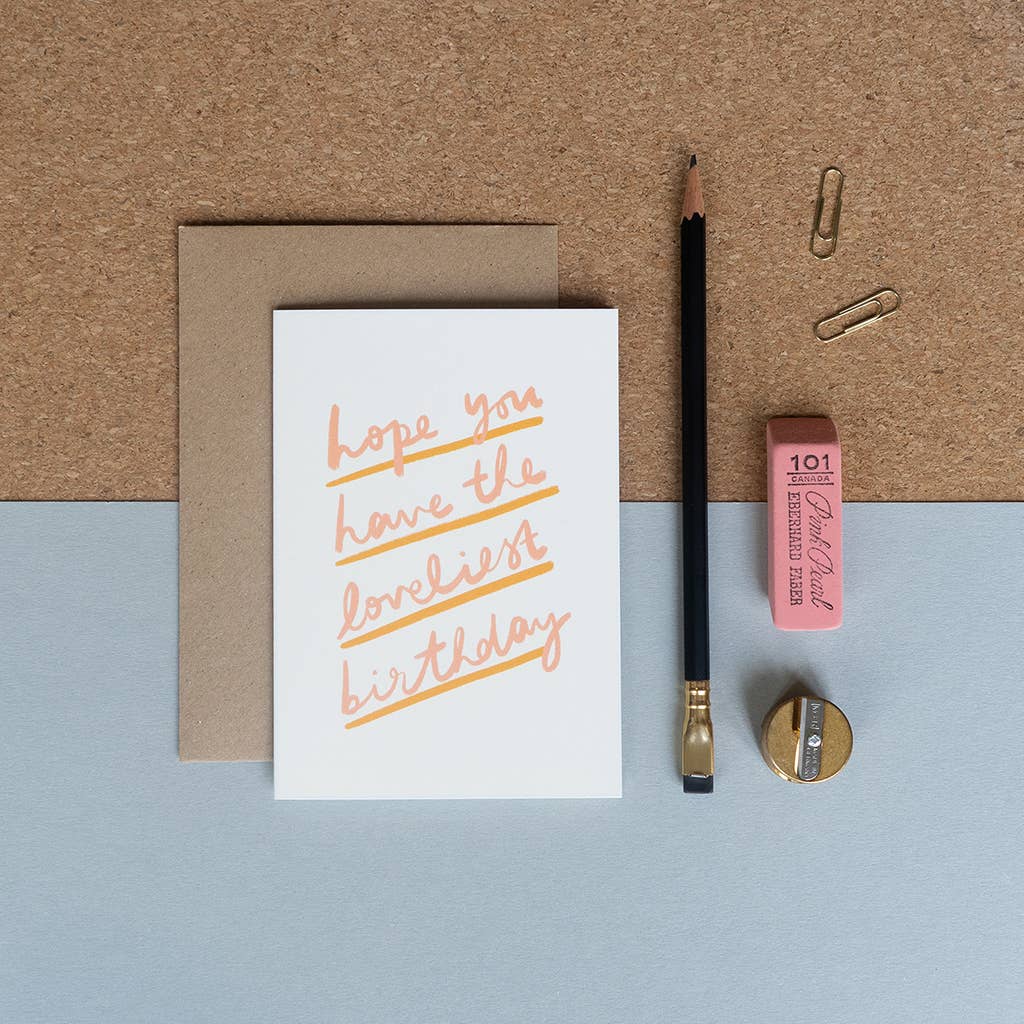 hope you
have the
loveliest
birthday
101
CANADA
Pink Pearl
EBERHARD FABER